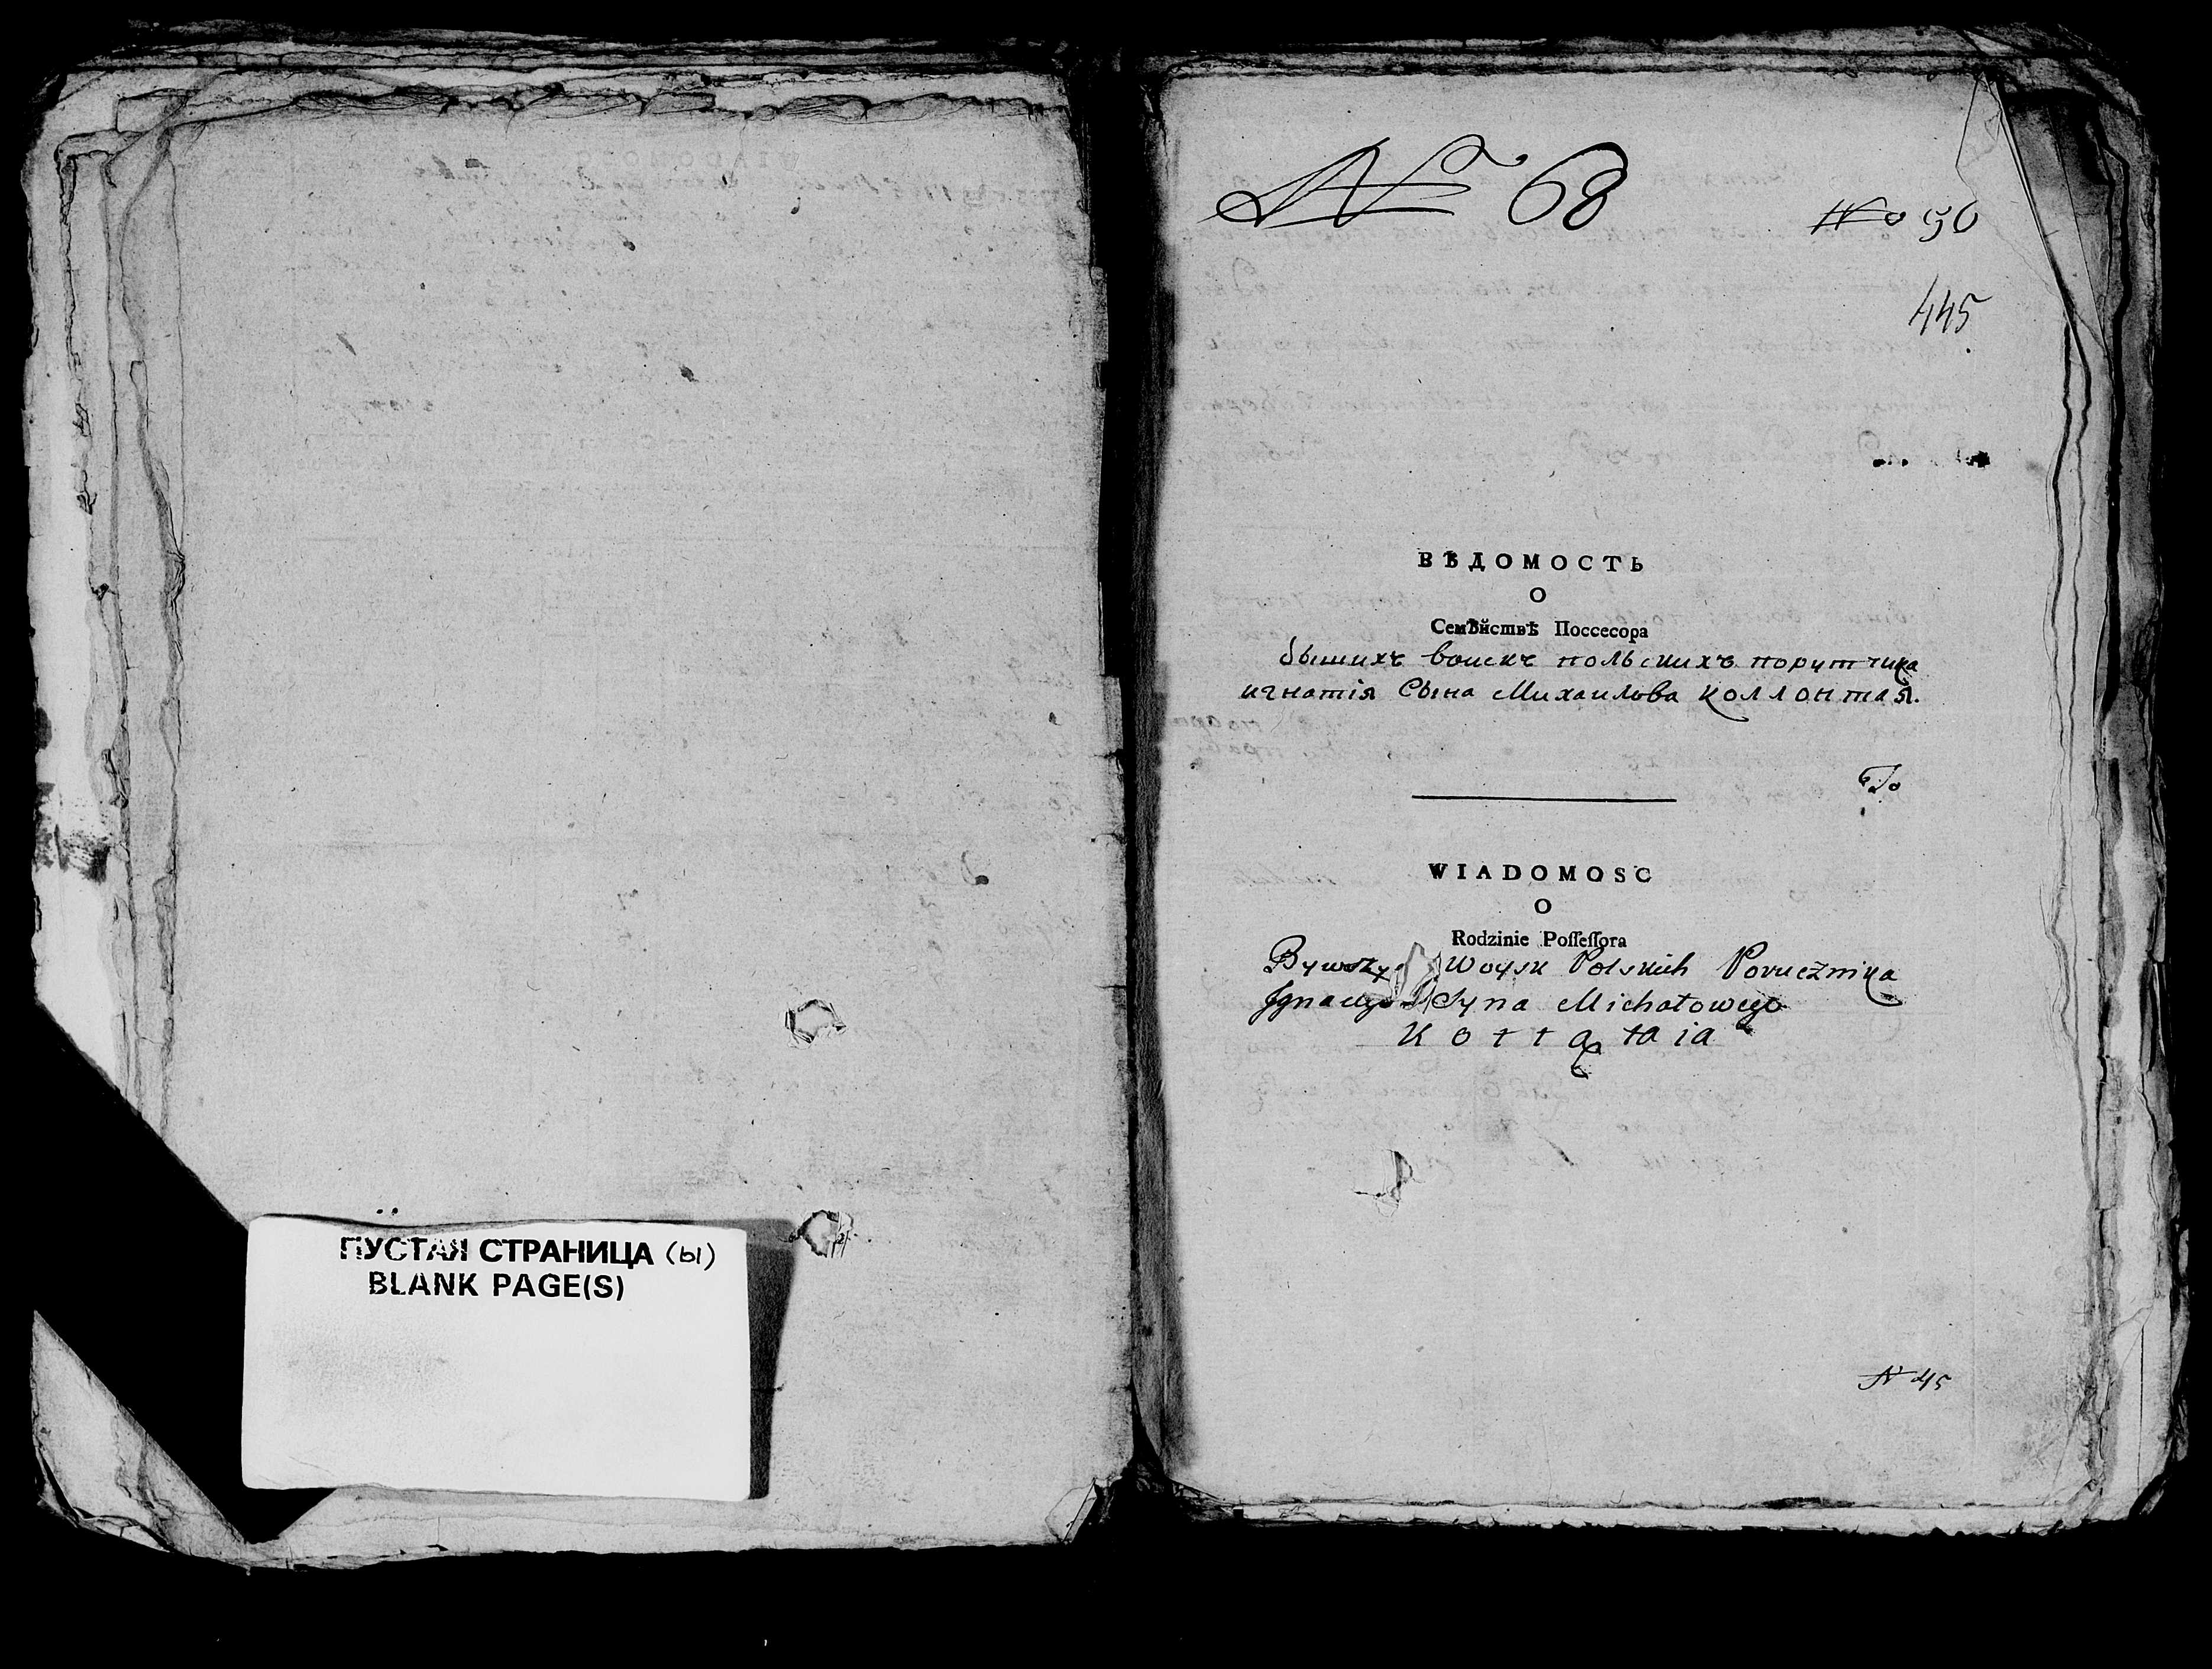 ПУСТАЯ СТРАНИЦА (ы)
BLANK PAGE(S)
№ 68
№ 50
445
ВѢДОМОСТЬ
О
Семѣйствѣ Поссесора
бышихъ воискъ польскихъ порутчика
игнатія Сына Михаилова Коллонтая.
То
WIADOMOSC
O
Rodzinie Poſſeſſora
Bywszy Woysk Polskich Porucznika
Ignacego Syna Michałowego
Kołłątaia
N 45